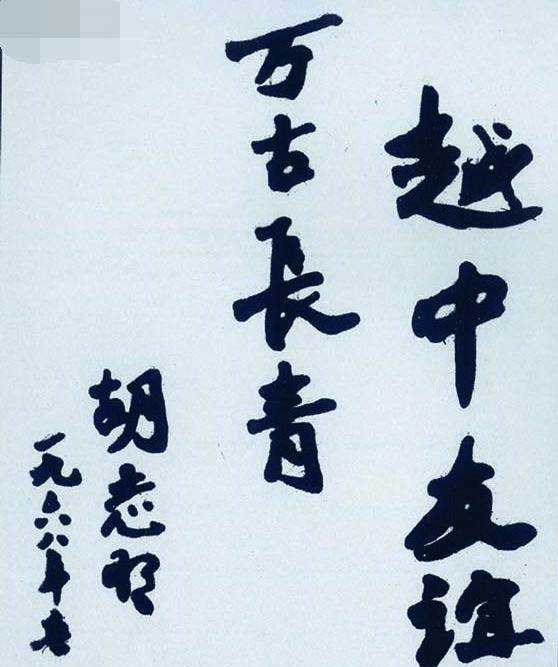 越中友谊
万古長青
胡志明
一九六八年